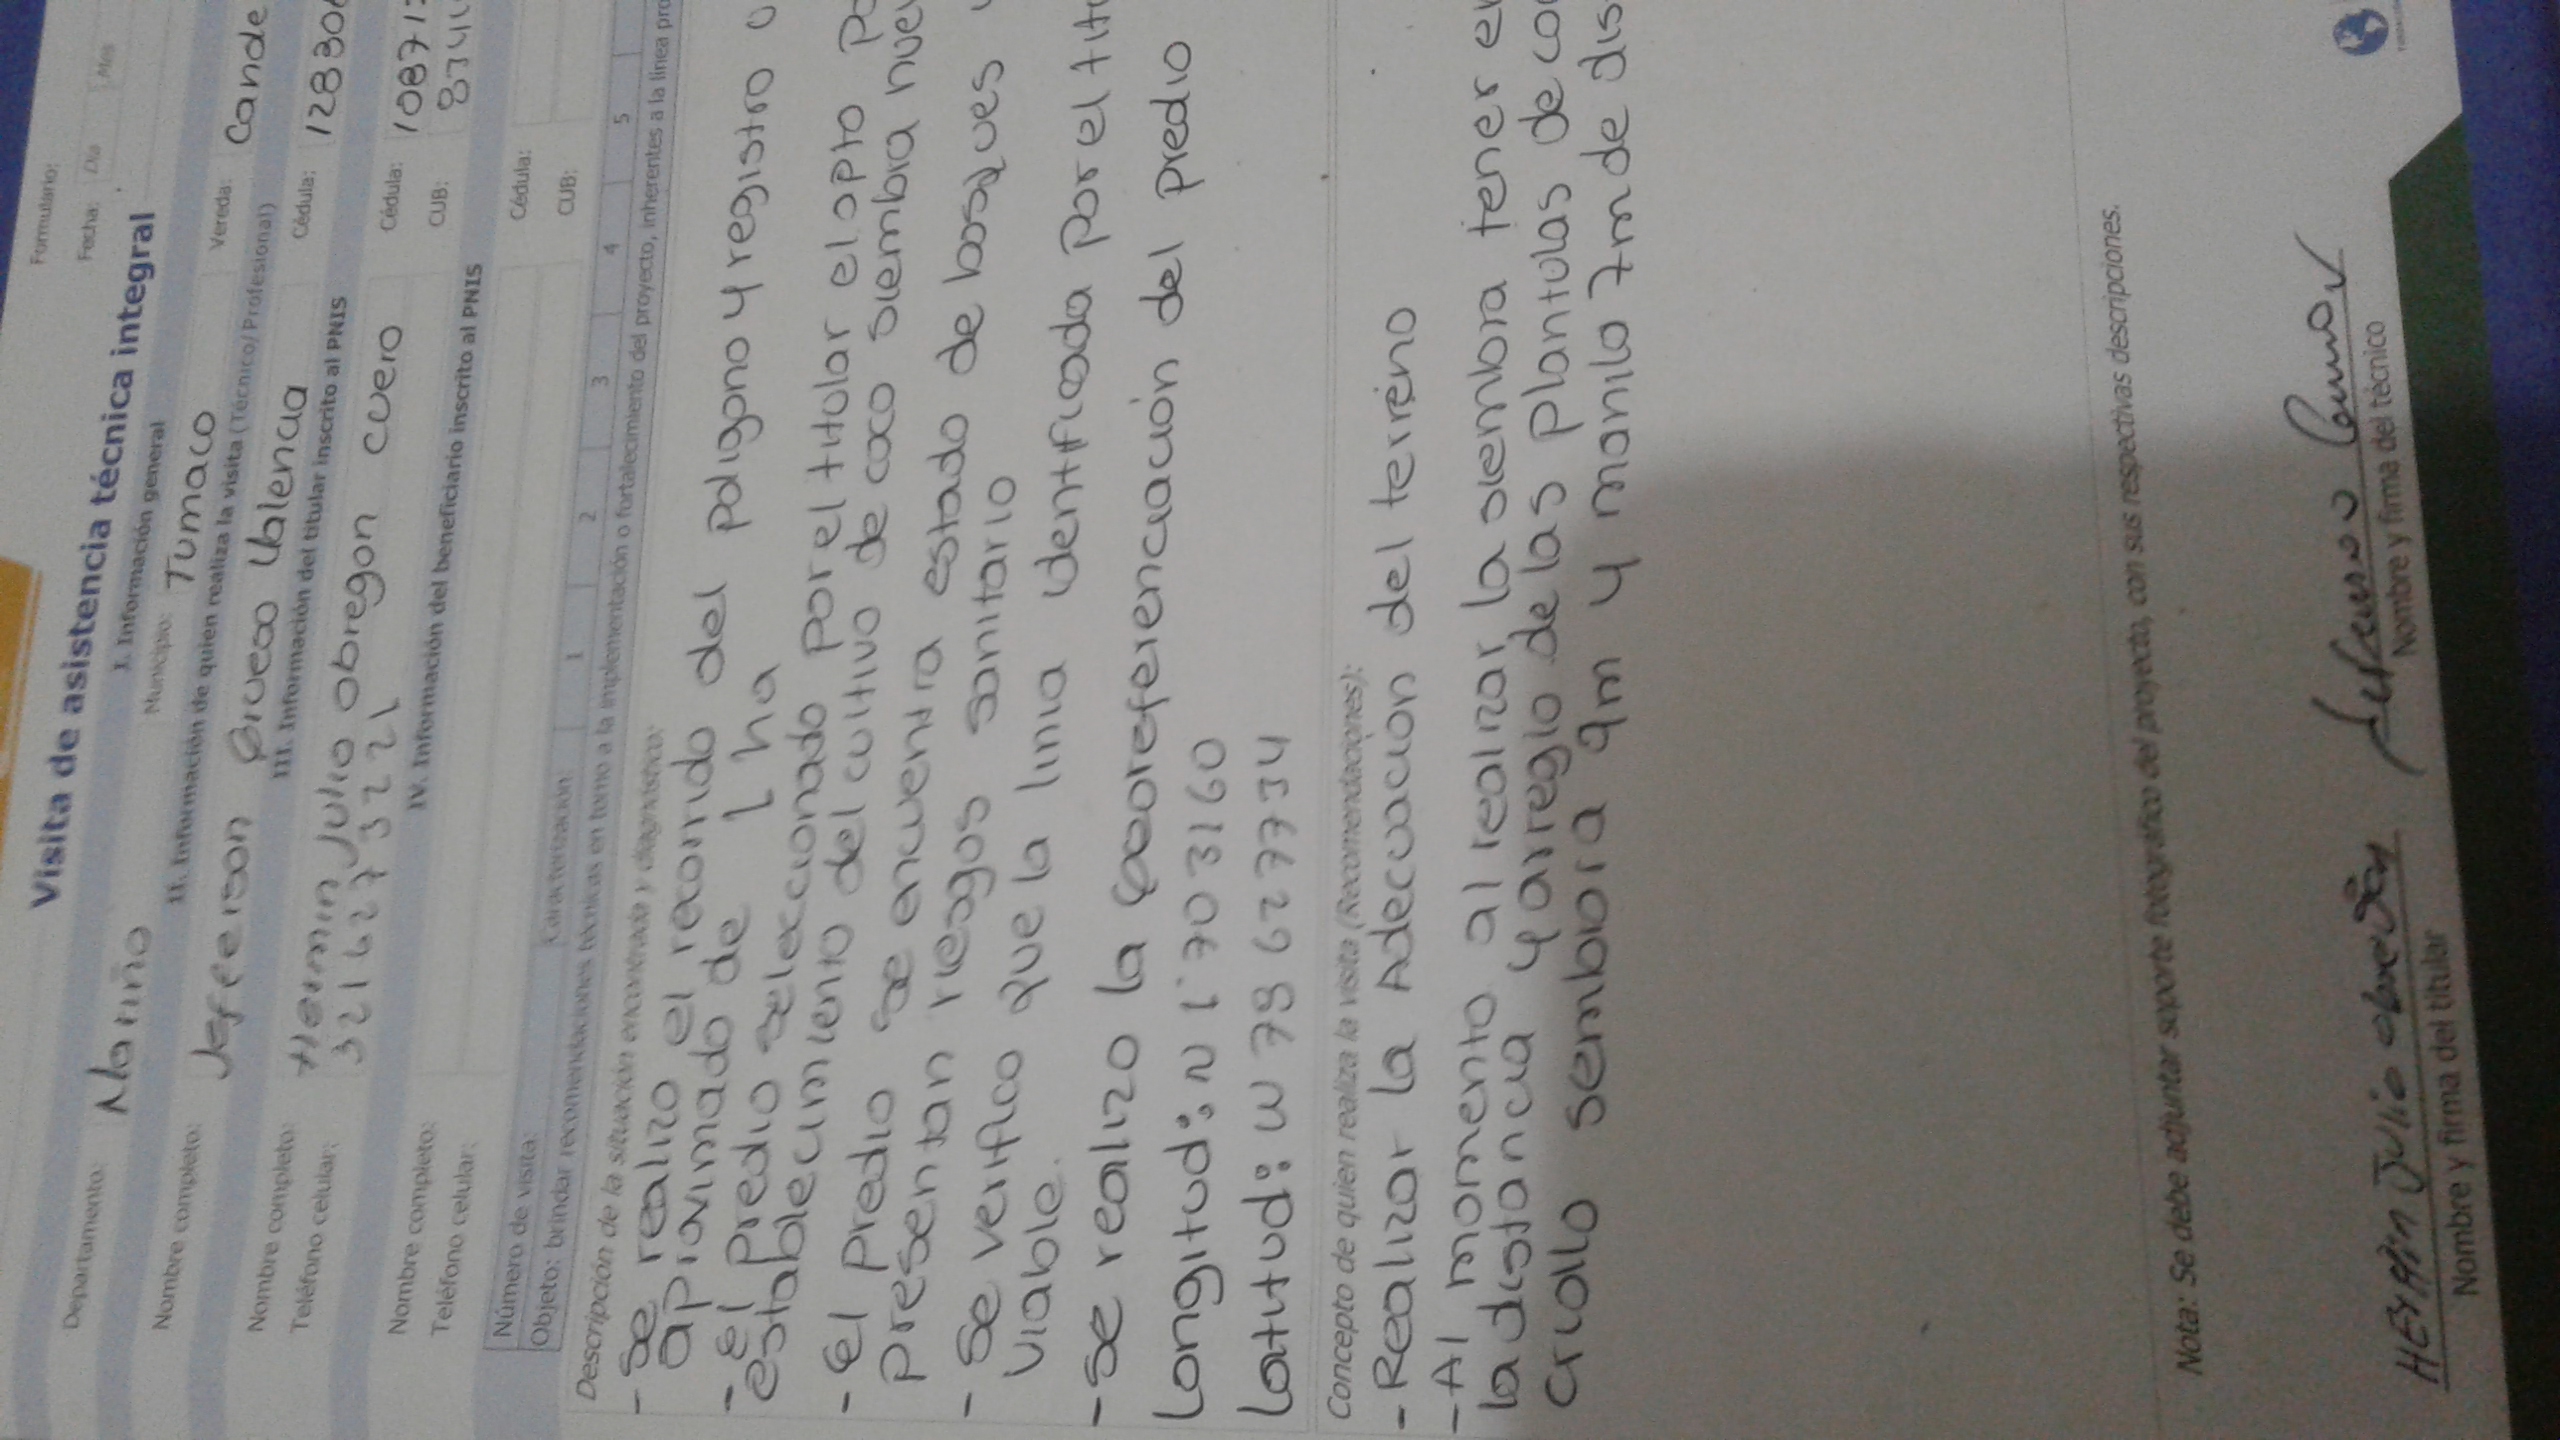 Formulario:
Visita de asistencia técnica integral
Fecha: Día Mes
I. Información general
Departamento: Nariño Municipio: Tumaco Vereda: Cande
II. Información de quien realiza la visita (Técnico/Profesional)
Nombre completo: Jefferson Grueso Valencia Cédula: 128306
III. Información del titular inscrito al PNIS
Nombre completo: Hermin Julio obregon cuero Cédula: 10871
Teléfono celular: 3216273221 CUB:
IV. Información del beneficiario inscrito al PNIS
Nombre completo: Cédula:
Teléfono celular: CUB:
Número de visita: Caracterización 1 2 3 4 5
Objeto: brindar recomendaciones técnicas en torno a la implementación o fortalecimiento del proyecto, inherentes a la línea pro
Descripción de la situación encontrada y diagnóstico:
- se realizo el recorrido del poligono y registro
aproximado de 1 ha
- el predio seleccionado por el titular el opto
establecimiento del cultivo de coco siembra nue
- el predio se encuentra estado de bosques
presentan riesgos sanitario
- Se verifico que la linia identificada por el titu
viable.
- Se realizo la georeferenciación del predio
Longitud: N 1.703160
Latitud: W 78 627734
Concepto de quien realiza la visita (Recomendaciones):
- Realizar la Adecuacion del terreno
- Al momento al realizar la siembra tener en
la distancia y arreglo de las plantulas de co
criollo sembrora 9m y manila 7m de dis
Nota: Se debe adjuntar soporte fotográfico del proyecto, con sus respectivas descripciones.
HERMIN Julio obregon
Nombre y firma del titular Nombre y firma del técnico